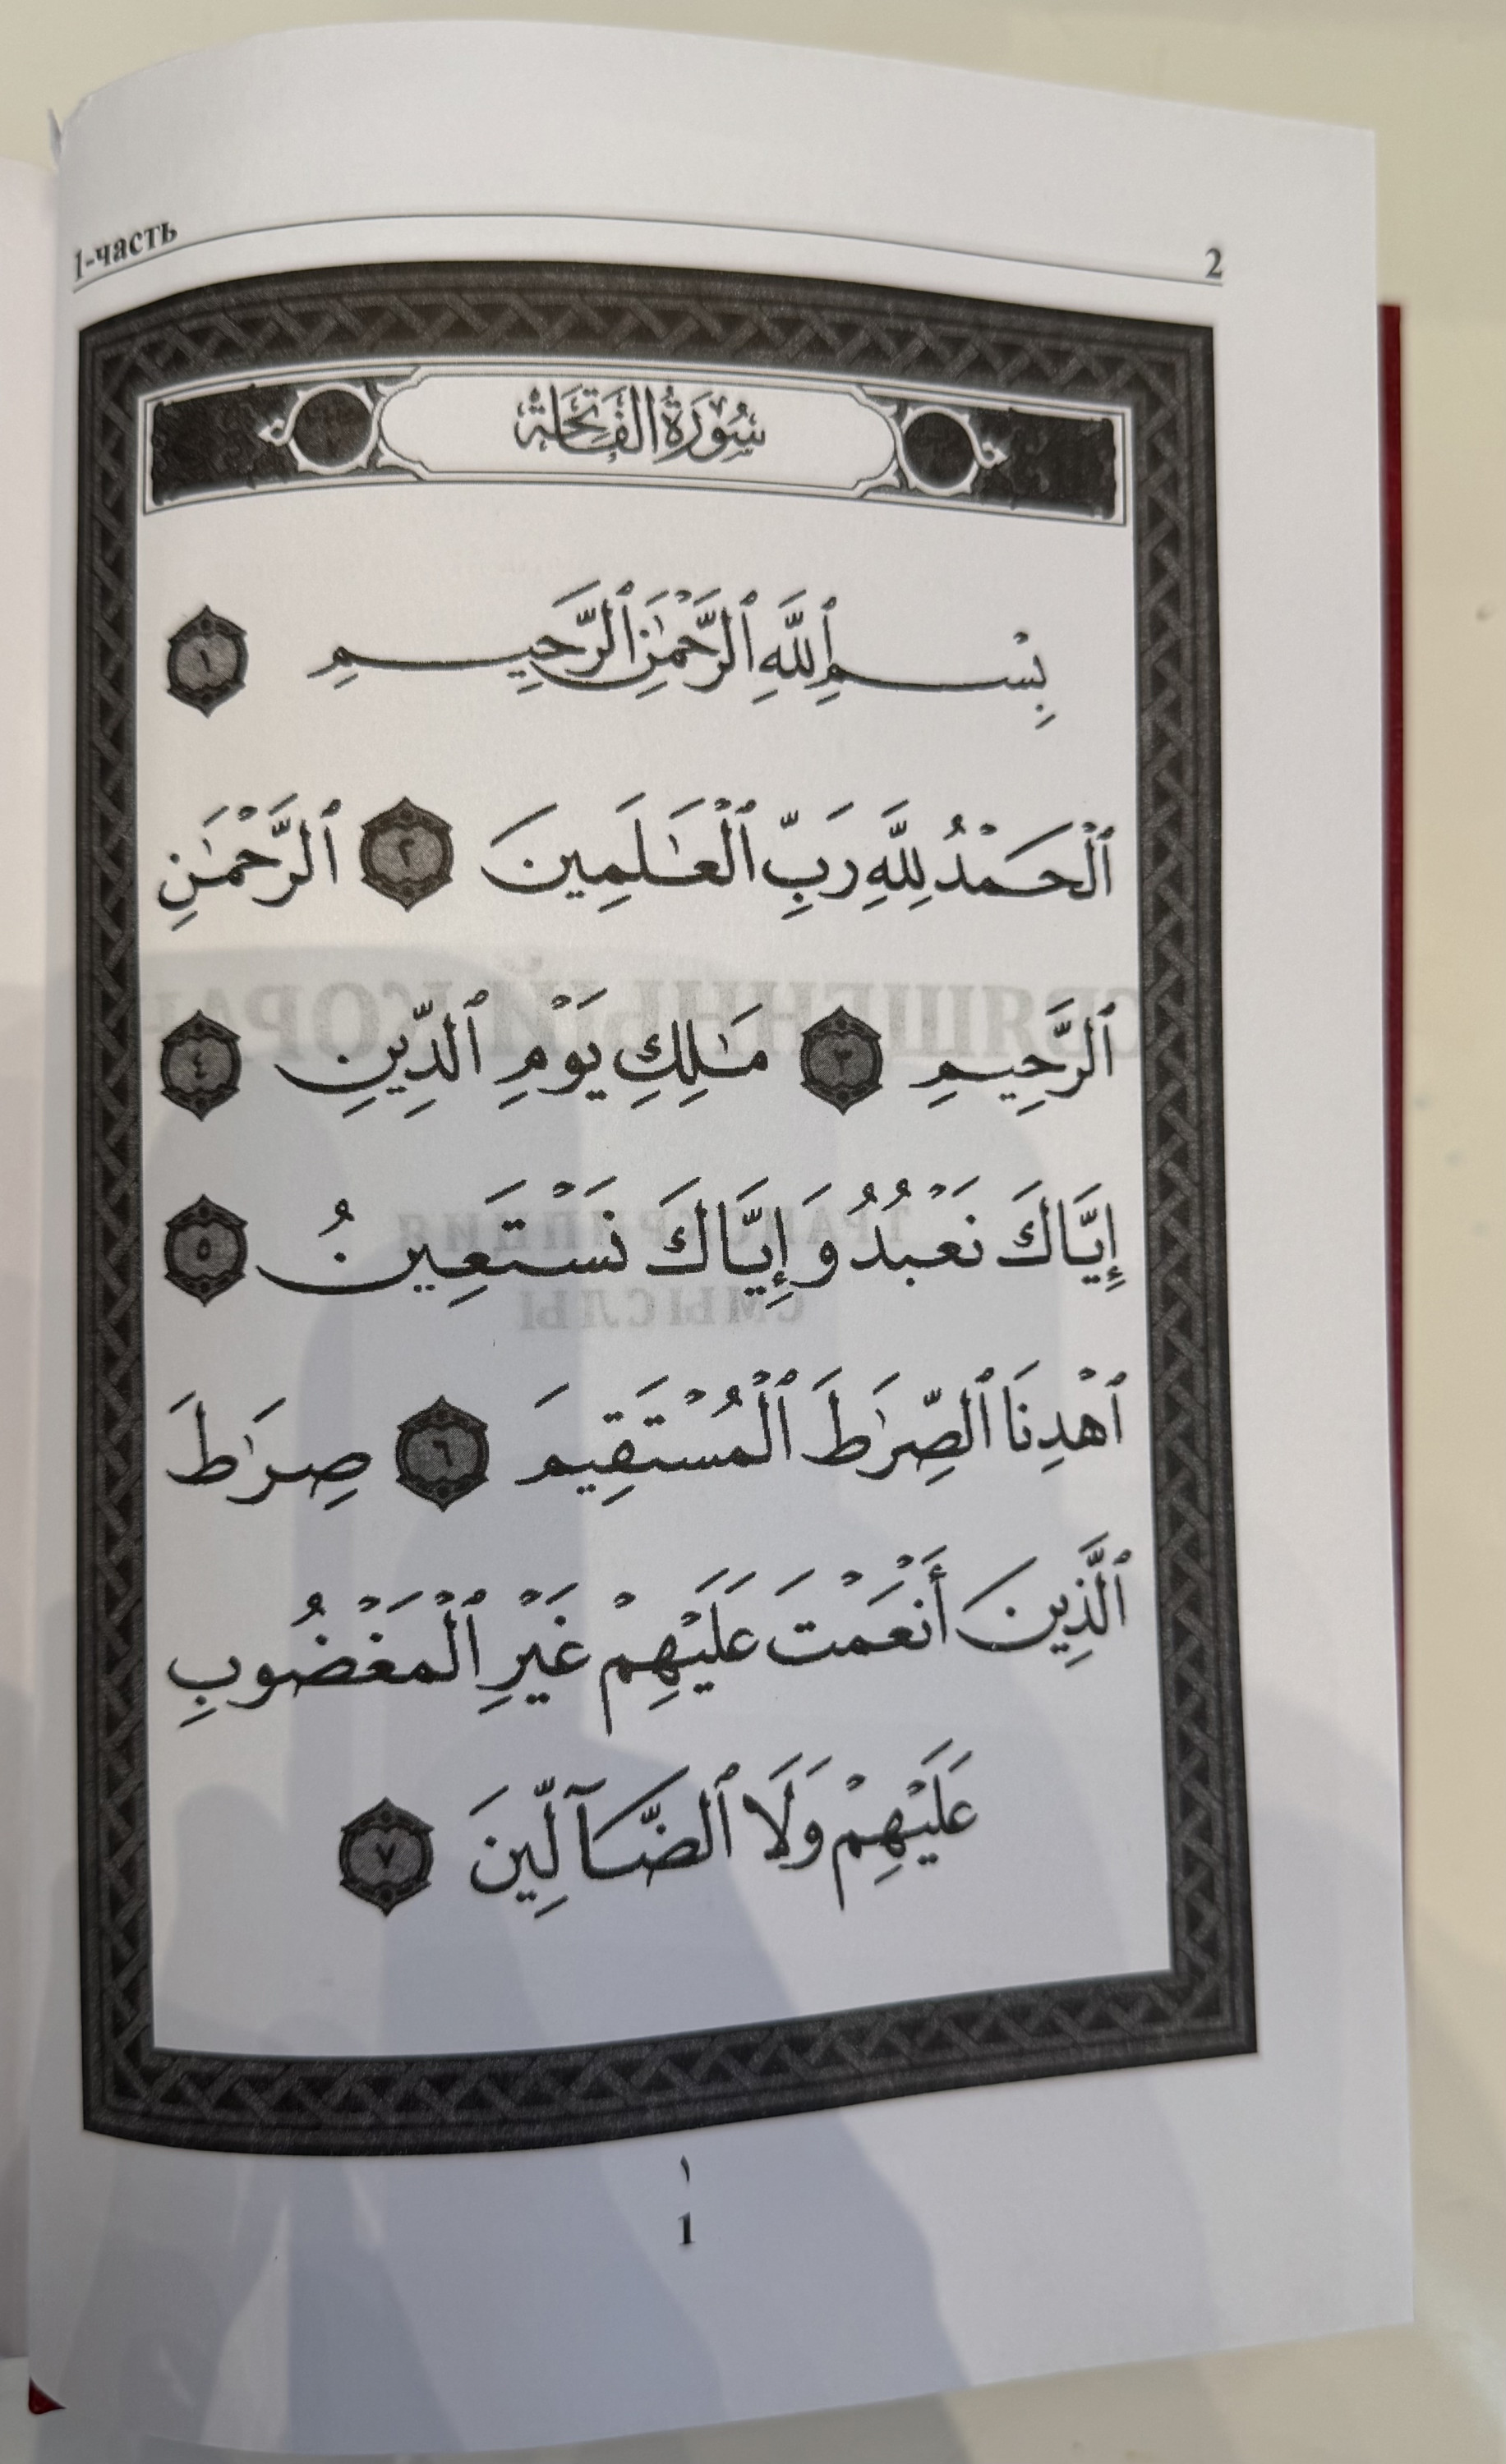 1-часть 2
سُورَةُ الفَاتِحَة
بِسْمِ ٱللَّهِ ٱلرَّحْمَٰنِ ٱلرَّحِيمِ ١
ٱلْحَمْدُ لِلَّهِ رَبِّ ٱلْعَٰلَمِينَ ٢ ٱلرَّحْمَٰنِ
ٱلرَّحِيمِ ٣ مَٰلِكِ يَوْمِ ٱلدِّينِ ٤
إِيَّاكَ نَعْبُدُ وَإِيَّاكَ نَسْتَعِينُ ٥
ٱهْدِنَا ٱلصِّرَٰطَ ٱلْمُسْتَقِيمَ ٦ صِرَٰطَ
ٱلَّذِينَ أَنْعَمْتَ عَلَيْهِمْ غَيْرِ ٱلْمَغْضُوبِ
عَلَيْهِمْ وَلَا ٱلضَّآلِّينَ ٧
١
1